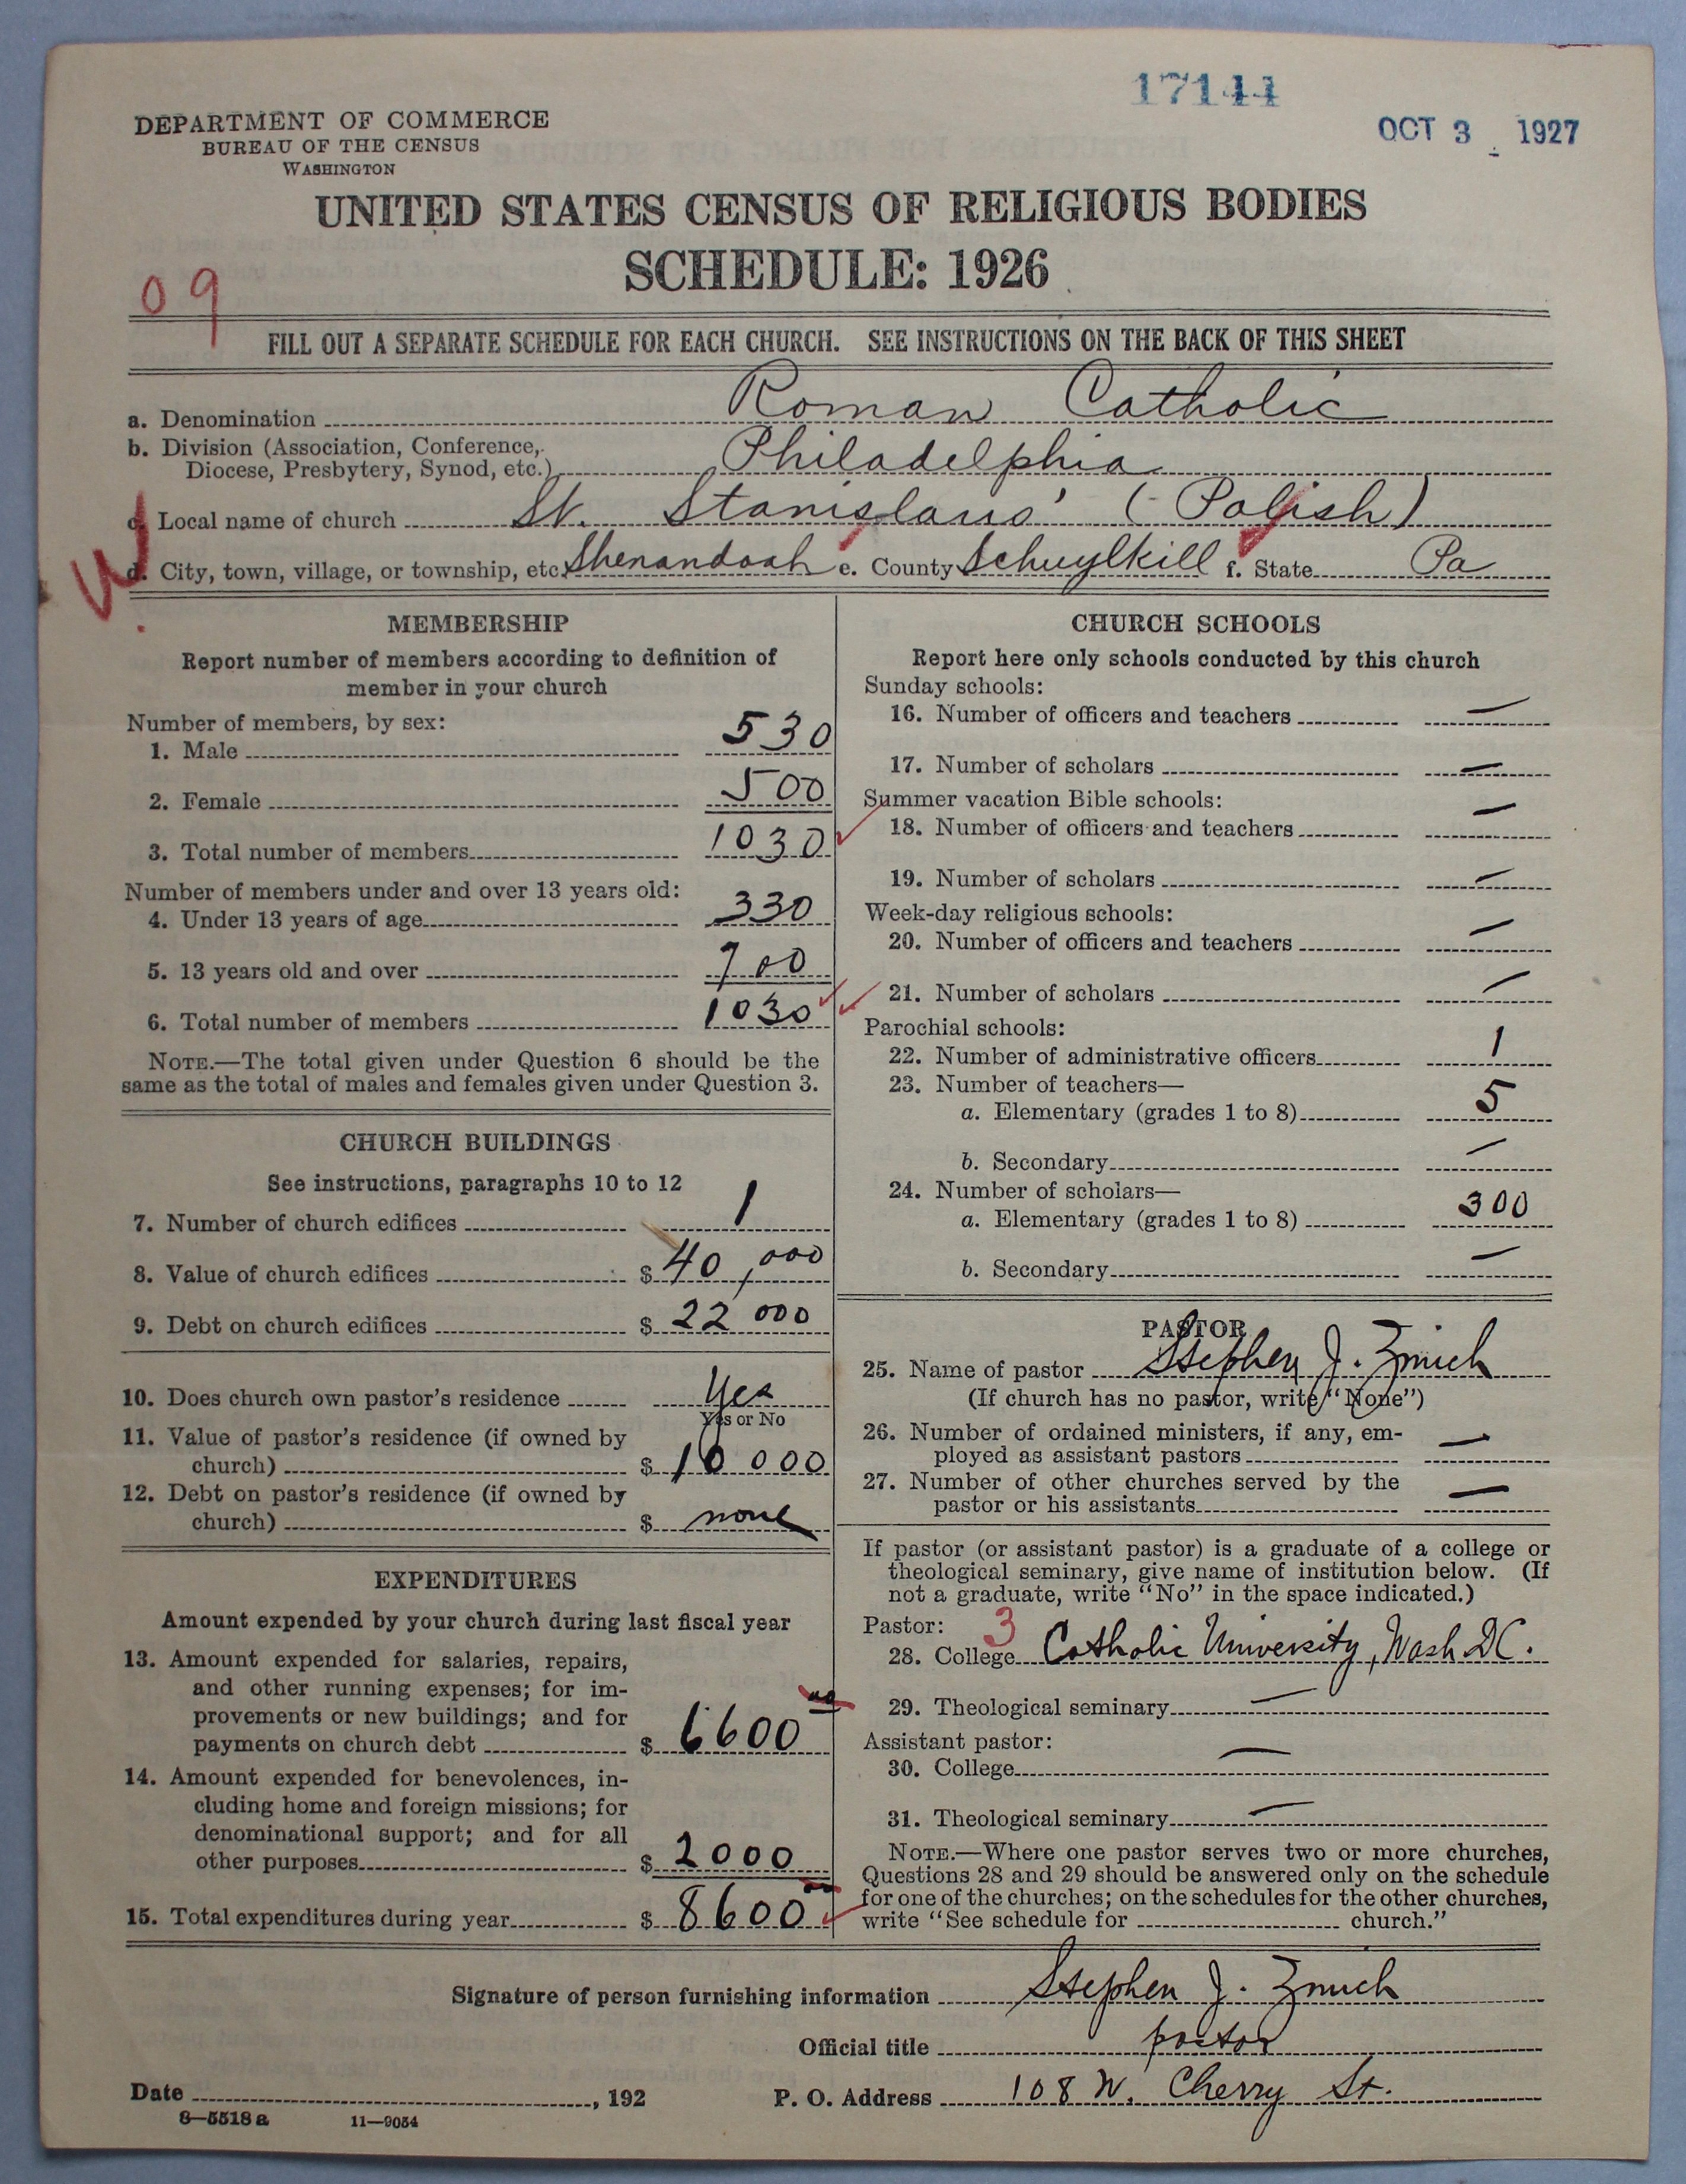 17144
OCT 3 1927
DEPARTMENT OF COMMERCE
BUREAU OF THE CENSUS
WASHINGTON
UNITED STATES CENSUS OF RELIGIOUS BODIES
SCHEDULE: 1926
09
FILL OUT A SEPARATE SCHEDULE FOR EACH CHURCH. SEE INSTRUCTIONS ON THE BACK OF THIS SHEET
a. Denomination Roman Catholic
b. Division (Association, Conference,
Diocese, Presbytery, Synod, etc.) Philadelphia
c. Local name of church St. Stanislaus' (Polish)
W
d. City, town, village, or township, etc. Shenandoah e. County Schuylkill f. State Pa
MEMBERSHIP
Report number of members according to definition of
member in your church
Number of members, by sex:
1. Male 530
2. Female 500
3. Total number of members 1030
Number of members under and over 13 years old:
4. Under 13 years of age 330
5. 13 years old and over 700
6. Total number of members 1030
NOTE.—The total given under Question 6 should be the
same as the total of males and females given under Question 3.
CHURCH BUILDINGS
See instructions, paragraphs 10 to 12
7. Number of church edifices 1
8. Value of church edifices $ 40,000
9. Debt on church edifices $ 22 000
10. Does church own pastor's residence Yes
Yes or No
11. Value of pastor's residence (if owned by
church) $ 10 000
12. Debt on pastor's residence (if owned by
church) $ none
EXPENDITURES
Amount expended by your church during last fiscal year
13. Amount expended for salaries, repairs,
and other running expenses; for im-
provements or new buildings; and for
payments on church debt $ 6600
14. Amount expended for benevolences, in-
cluding home and foreign missions; for
denominational support; and for all
other purposes $ 2000
15. Total expenditures during year $ 8600
CHURCH SCHOOLS
Report here only schools conducted by this church
Sunday schools:
16. Number of officers and teachers —
17. Number of scholars —
Summer vacation Bible schools:
18. Number of officers and teachers —
19. Number of scholars —
Week-day religious schools:
20. Number of officers and teachers —
21. Number of scholars —
Parochial schools:
22. Number of administrative officers 1
23. Number of teachers—
a. Elementary (grades 1 to 8) 5
b. Secondary —
24. Number of scholars—
a. Elementary (grades 1 to 8) 300
b. Secondary —
PASTOR
25. Name of pastor Stephen J. Zmich
(If church has no pastor, write "None")
26. Number of ordained ministers, if any, em-
ployed as assistant pastors —
27. Number of other churches served by the
pastor or his assistants —
If pastor (or assistant pastor) is a graduate of a college or
theological seminary, give name of institution below. (If
not a graduate, write "No" in the space indicated.)
Pastor: 3
28. College Catholic University, Wash DC.
29. Theological seminary —
Assistant pastor:
30. College —
31. Theological seminary —
NOTE.—Where one pastor serves two or more churches,
Questions 28 and 29 should be answered only on the schedule
for one of the churches; on the schedules for the other churches,
write "See schedule for church."
Signature of person furnishing information Stephen J. Zmich
Official title pastor
Date , 192 P. O. Address 108 W. Cherry St.
8—5518a 11—9054